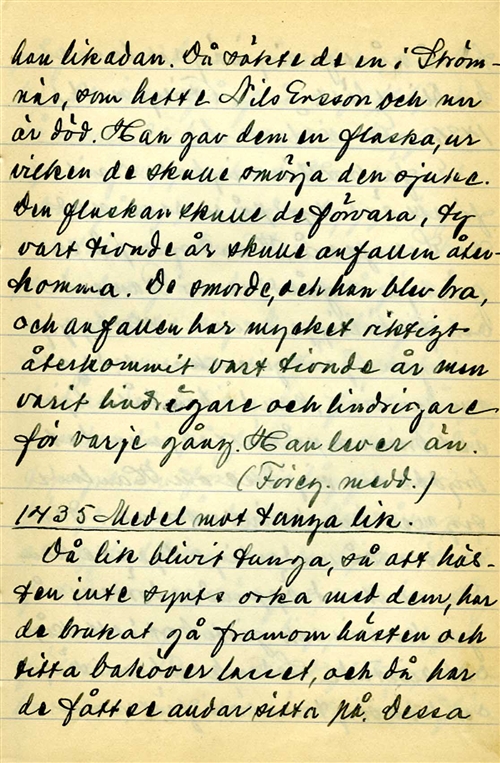 han likadan. Då sökte de en i Ström-
näs, som hette Nils Ersson och nu
är död. Han gav dem en flaska, ur
vilken de skulle smörja den sjuke.
Den flaskan skulle de förvara, ty
vart tionde år skulle anfallen åter-
komma. De smorde, och han blev bra,
och anfallen har mycket riktigt
återkommit vart tionde år men
varit lindrigare och lindrigare
för varje gång. Han lever än.
(Föreg. medd.)
1435 Medel mot tunga lik.
Då lik blivit tunga, så att häs-
ten inte synts orka med dem, har
de brukat gå framom hästen och
titta bakåver lasset, och då har
de fått se andar sitta på. Dessa